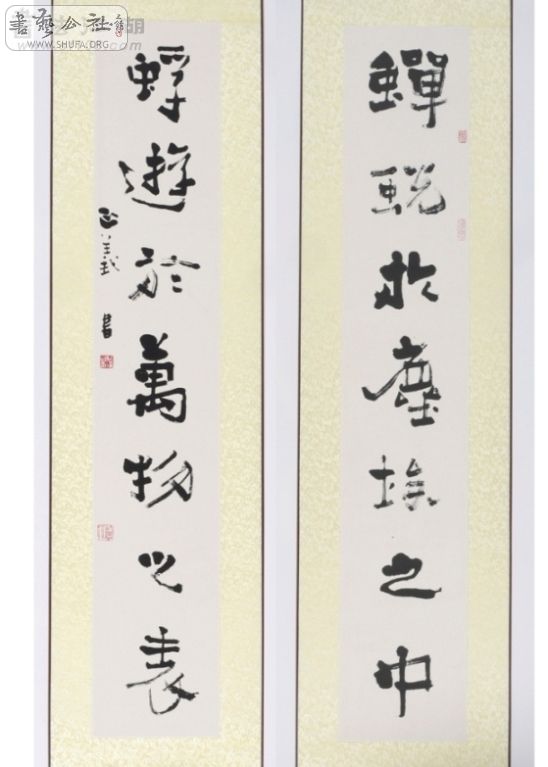 書藝公社
WWW.SHUFA.ORG
蟬蛻於塵埃之中
蜉遊於萬物之表
正義書